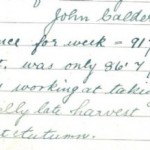 John Calder
nce for week - 917
t. was only 86°7
s working at takin
ally late harvest
t autumn.